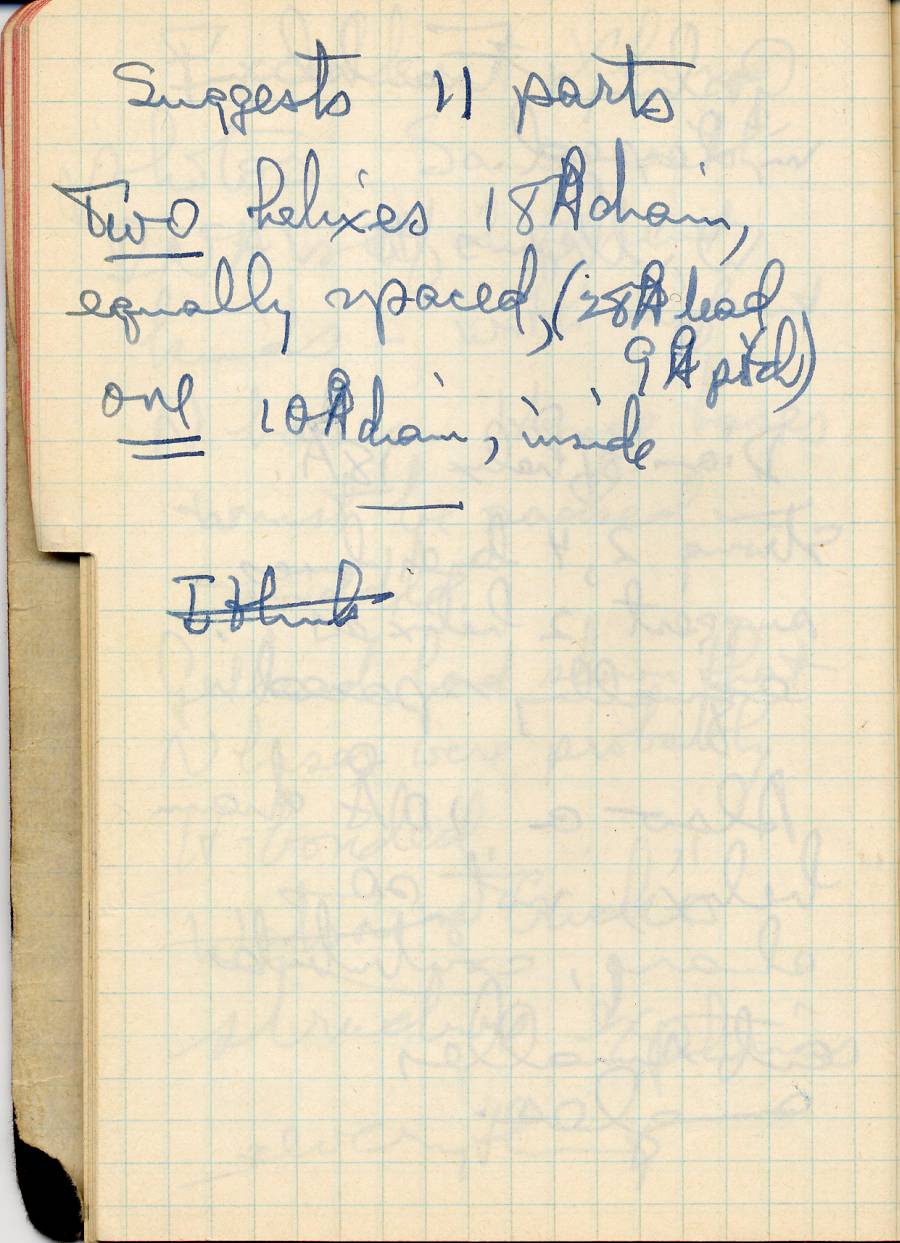 Suggests 11 parts
Two helixes 18Å diam,
equally spaced, (28Å lead
9Å pitch)
one 10Å diam, inside
I think